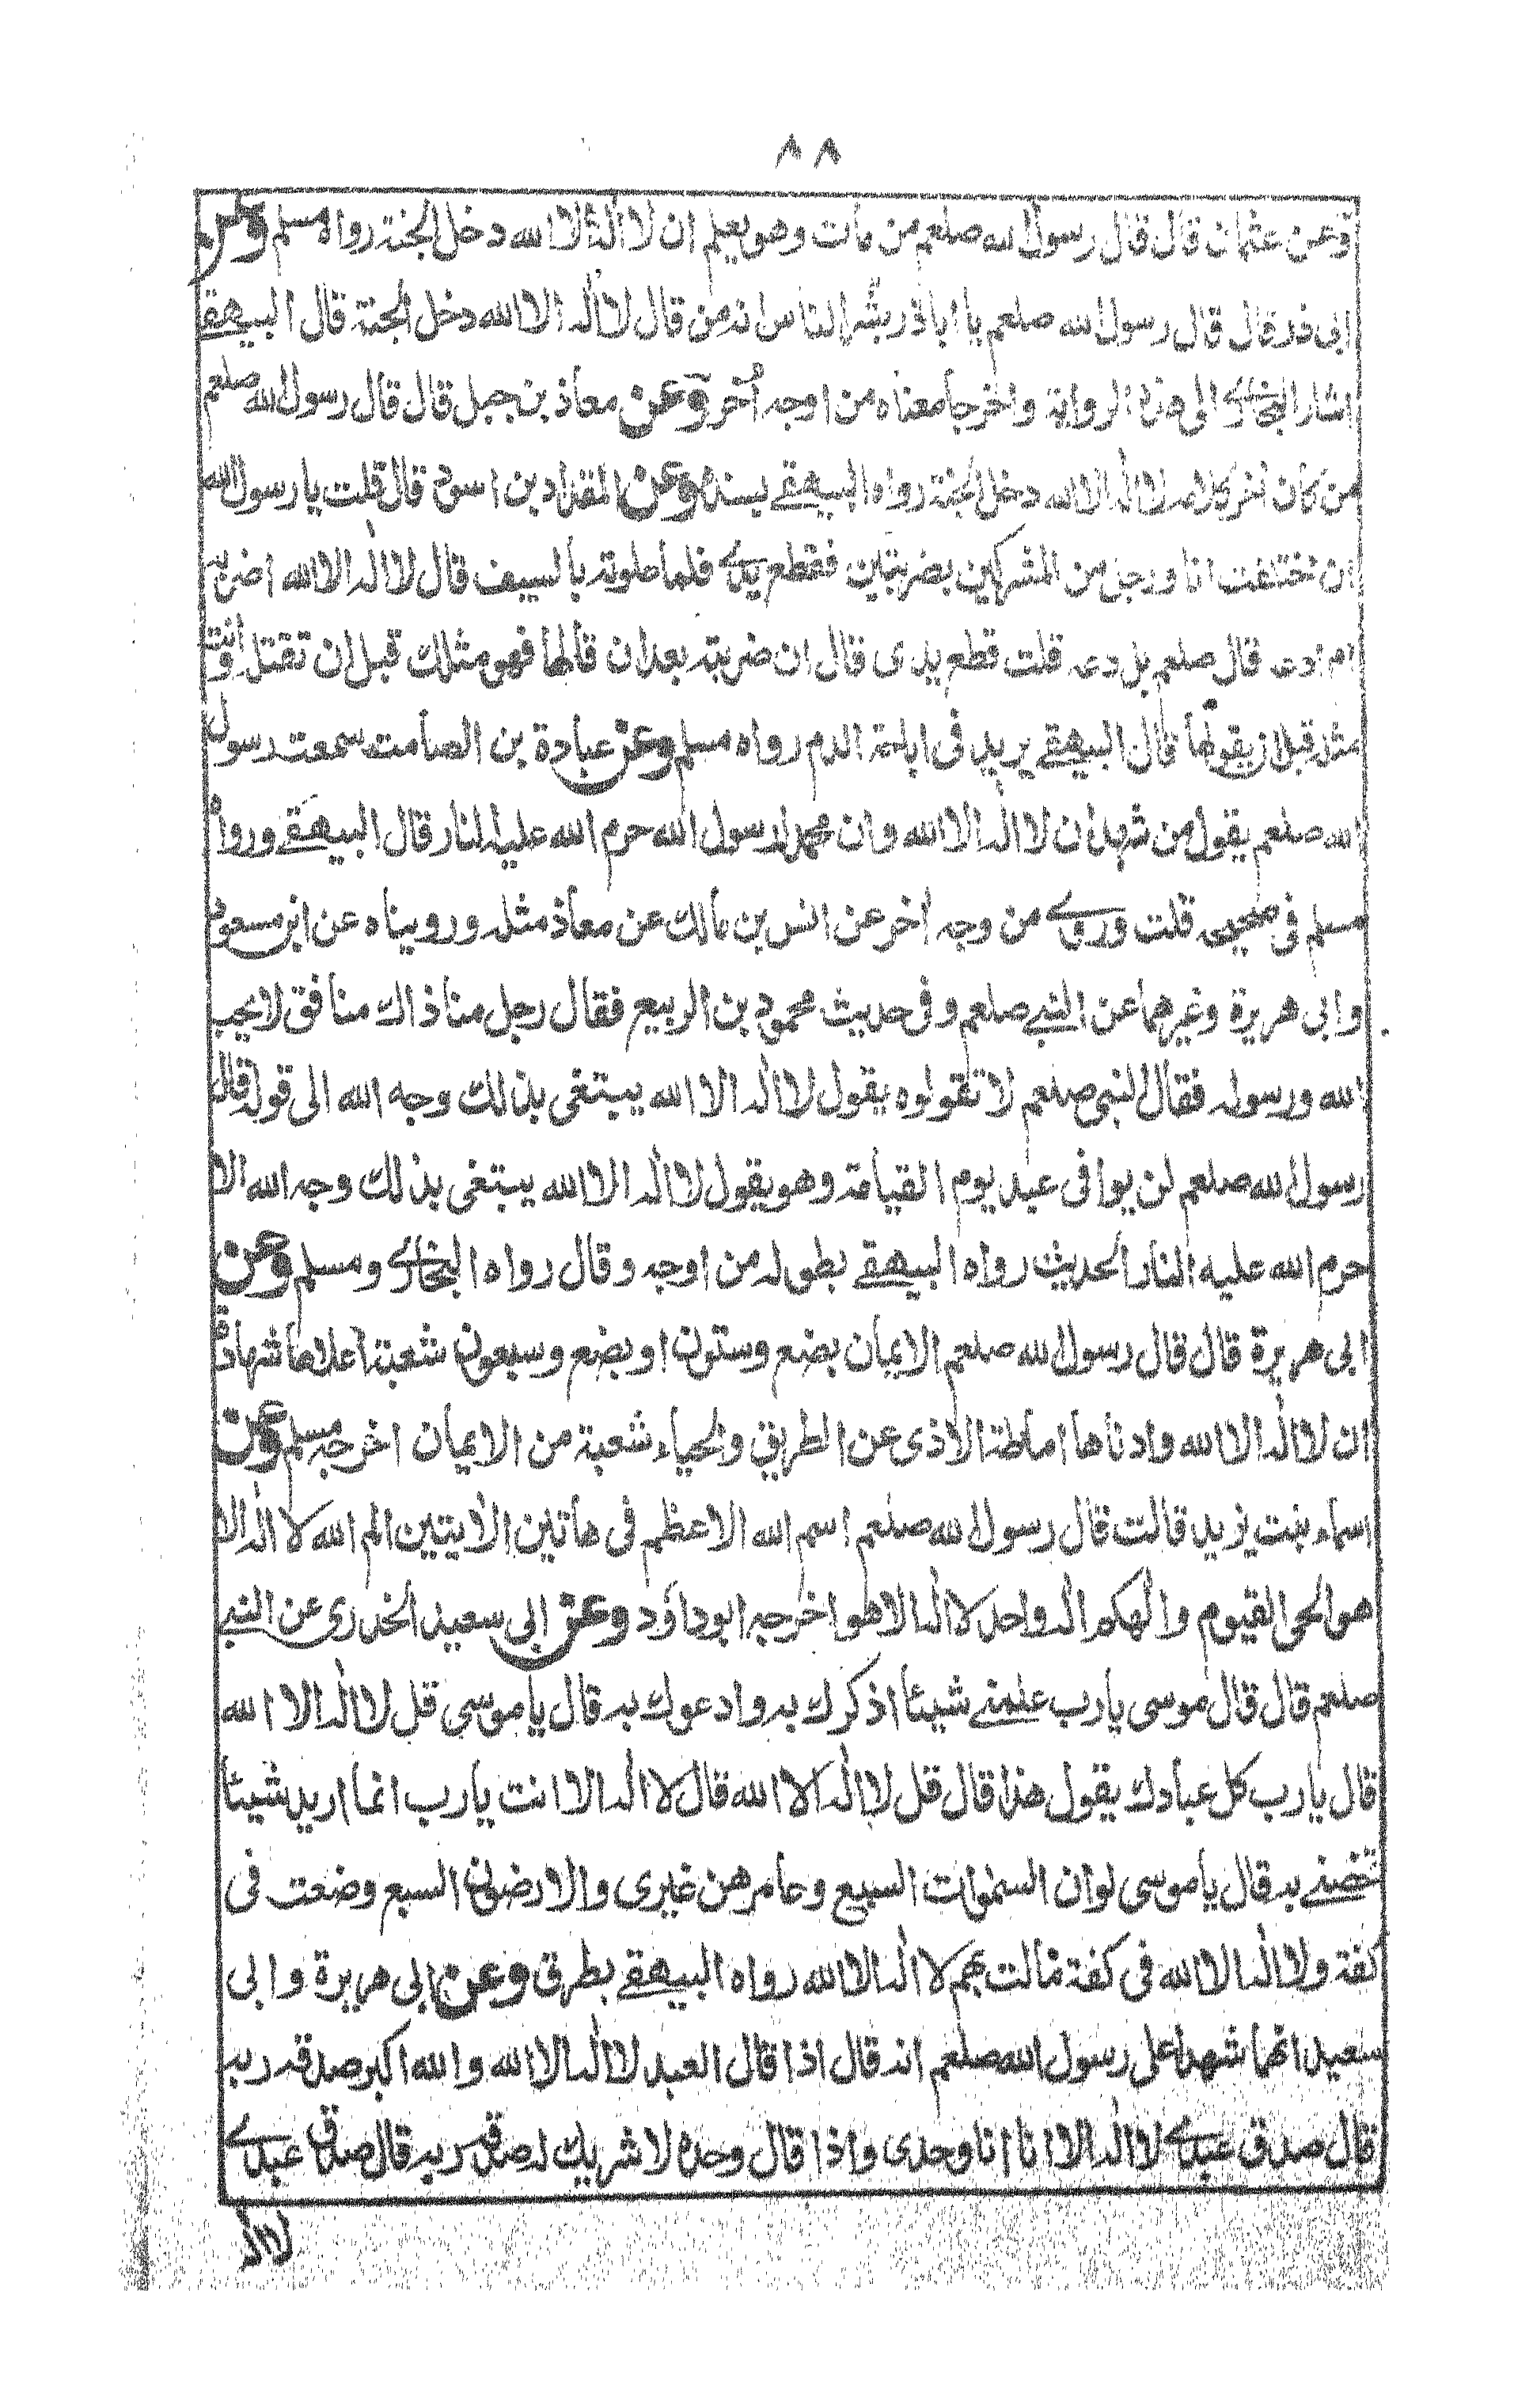 ٨٨
وعن عثمان قال قال رسول الله صلعم من مات وهو يعلم ان لا اله الا الله دخل الجنة رواه مسلم وعن
ابى ذر قال قال رسول الله صلعم يا اباذر بشر الناس انه من قال لا اله الا الله دخل الجنة قال البيهقے
اشار البخارے الى هذه الرواية واخرجا معناه من اوجه اُخر وعن معاذ بن جبل قال قال رسول الله صلعم
من كان اخر كلامه لا اله الا الله دخل الجنة رواه البيهقے بسنده وعن المقداد بن اسود قال قلت يا رسول الله
ان اختلفت انا ورجل من المشركين بضربتين فقطع يدے فلما علوته بالسيف قال لا اله الا الله اضربه
ام ادعه قال صلعم بل دعه قلت قطع يدى قال ان ضربته بعد ان قالها فهو مثلك قبل ان تقتله وانت
مثله قبل ان يقولها قال البيهقے يريد فى اباحة الدم رواه مسلم وعن عبادة بن الصامت سمعت رسول
الله صلعم يقول من شهد ان لا اله الا الله وان محمدا رسول الله حرم الله عليه النار قال البيهقے ورواه
مسلم فى صحيحه قلت وروے من وجه اٰخر عن انس بن مالك عن معاذ مثله ورويناه عن ابن مسعود
وابى هريرة وغيرهما عن النبے صلعم وفى حديث محمود بن الربيع فقال رجل منا ذاك منافق لا يحب
الله ورسوله فقال النبى صلعم لا تقولوه يقول لا اله الا الله يبتغى بذلك وجه الله الى قوله قال
رسول الله صلعم لن يوافى عبد يوم القيامة وهو يقول لا اله الا الله يبتغى بذلك وجه الله الا
حرم الله عليه النار الحديث رواه البيهقے بطوله من اوجه وقال رواه البخارے ومسلم وعن
ابى هريرة قال قال رسول الله صلعم الايمان بضع وستون او بضع وسبعون شعبة اعلاها شهادة
ان لا اله الا الله وادناها اماطة الاذى عن الطريق والحياء شعبة من الايمان اخرجه مسلم وعن
اسماء بنت يزيد قالت قال رسول الله صلعم اسم الله الاعظم فى هاتين الايتين الم الله لا اله الا
هو الحى القيوم والهكم اله واحد لا اله الا هو اخرجه ابوداؤد وعن ابى سعيد الخدرى عن النبے
صلعم قال قال موسى يارب علمنے شيئا اذكرك به وادعوك به قال يا موسى قل لا اله الا الله
قال يارب كل عبادك يقول هذا قال قل لا اله الا الله قال لا اله الا انت يارب انما اريد شيئا
تخصنے به قال يا موسى لو ان السمٰوات السبع وعامرهن غيرى والارضون السبع وضعت فى
كفة ولا اله الا الله فى كفة مالت بهم لا اله الا الله رواه البيهقے بطرق وعن ابى هريرة وابى
سعيد انهما شهدا على رسول الله صلعم انه قال اذا قال العبد لا اله الا الله والله اكبر صدقه ربه
قال صدق عبدے لا اله الا انا انا وحدى واذا قال وحده لا شريك له صدقه ربه قال صدق عبدے
لا اله